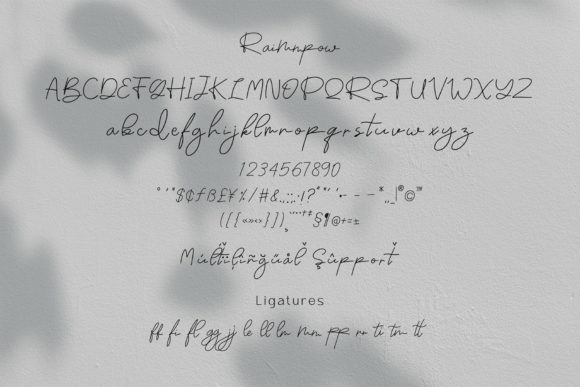 Raimnpow
ABCDEFGHIJKLMNOPQRSTUVWXYZ
abcdefghijklmnopqrstuvwxyz
1234567890
° ' " $¢ƒß£¥%/#&.,:;.·!?" "' '•- – — *„_|®©™
({[«»‹›}])¸§¶@+=±
Múltïlíñğûål Şûppořt
Ligatures
ff fi fl gg jj le ll lm mm pp rr ti tm tt